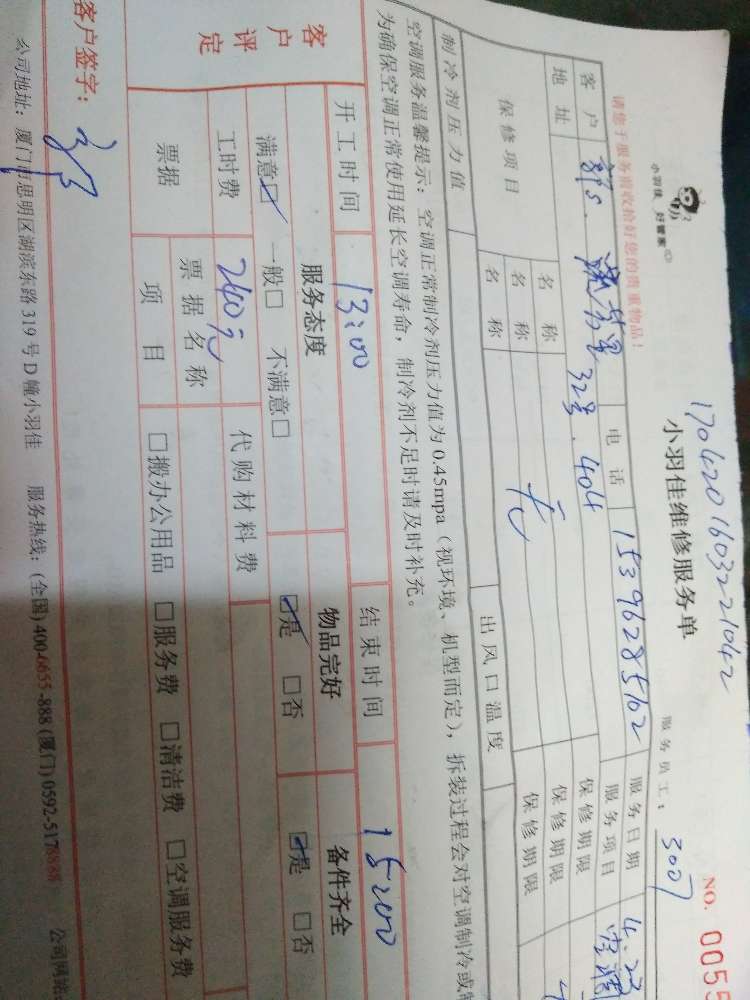 小羽佳 好管家
170420160322 1042
小羽佳维修服务单
请您于服务前收拾好您的贵重物品！
服务员工：3007
NO. 0055
客户 电话 15396285102 服务日期 4.23
地址 32号.404 服务项目 空调
保修项目 名称 无 保修期限
名称 保修期限
名称 保修期限
制冷剂压力值 出风口温度
空调服务温馨提示：空调正常制冷剂压力值为 0.45mpa（视环境、机型而定），拆装过程会对空调制冷或制
为确保空调正常使用延长空调寿命，制冷剂不足时请及时补充。
开工时间 13:00 结束时间 15:00
客户评定 服务态度 物品完好 备件齐全
满意☑ 一般□ 不满意□ ☑是 □否 ☑是 □否
工时费 240元 代购材料费
票据 票据名称
项目 □搬办公用品 □服务费 □清洁费 □空调服务费
客户签字：
公司地址：厦门市思明区湖滨东路 319 号 D 幢小羽佳 服务热线：(全国) 400-6655-888 (厦门) 0592-5178888 公司网站